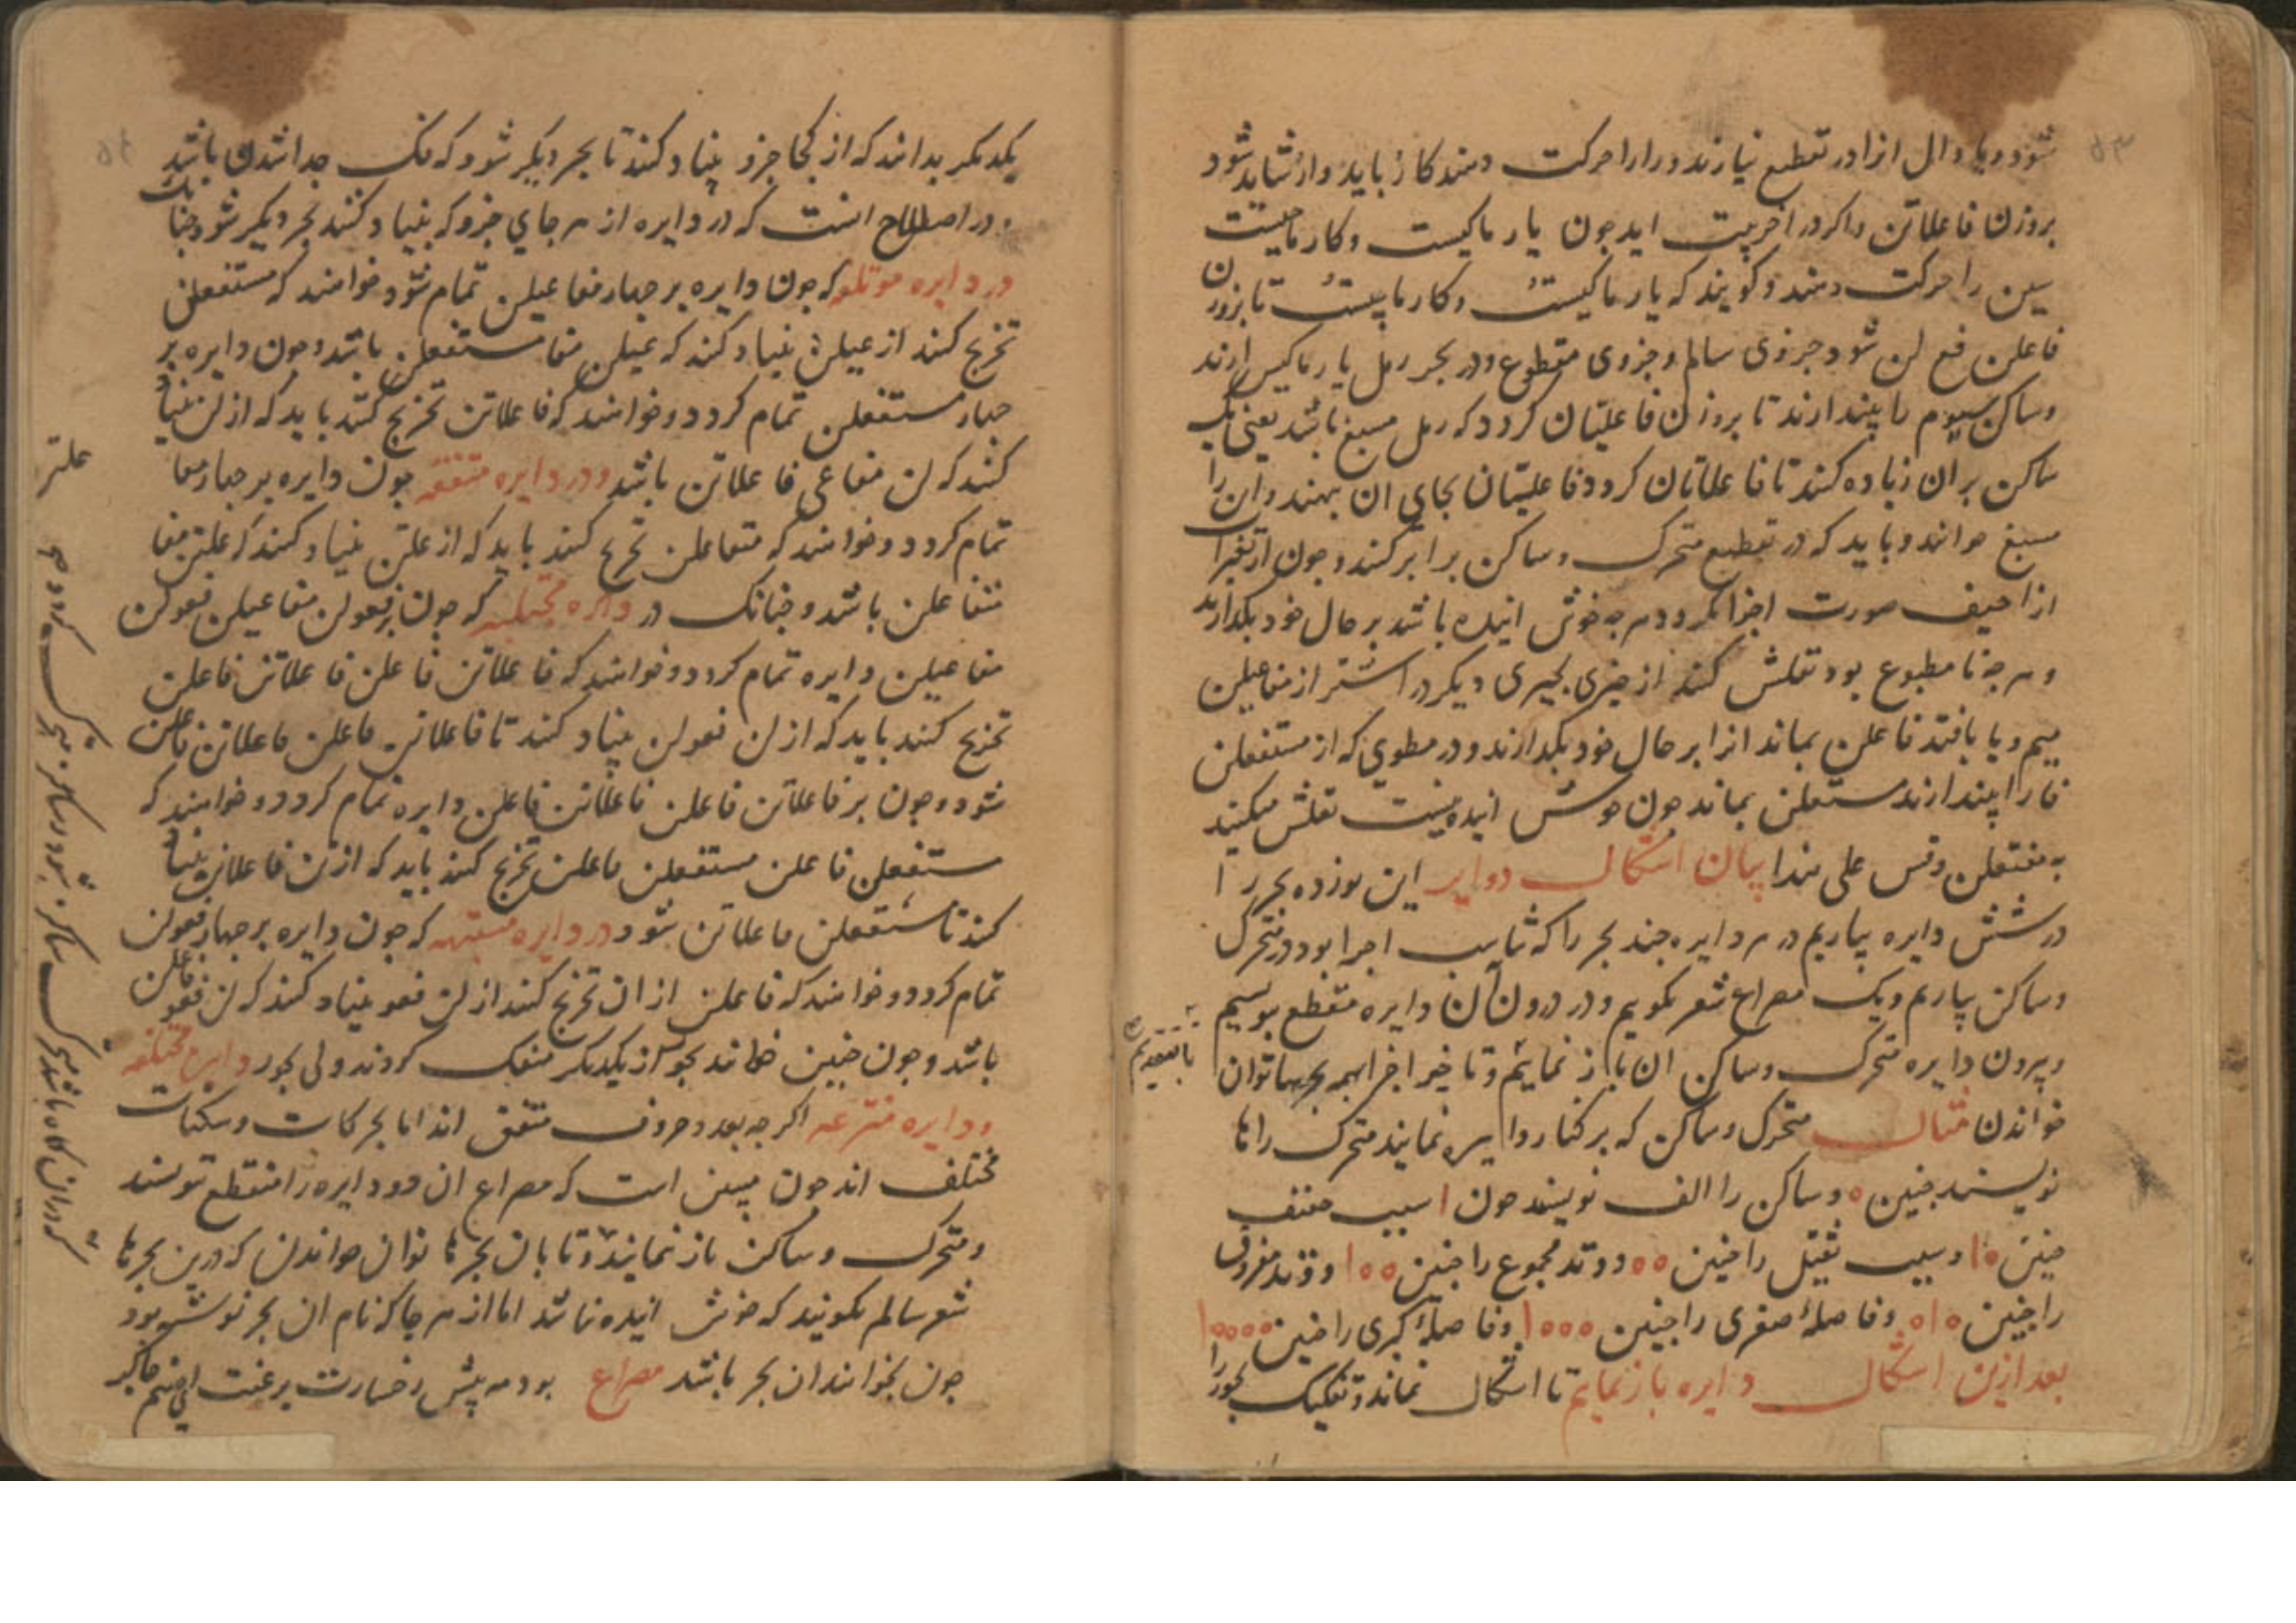 شود و یا و دال ازا در تقطیع نیارند و را را حرکت دهند کار باید و ار شاید شود
بروزن فاعلاتن و اکر در اخر بیت اید جون یار ماکیست و کار ماچیست
سین را حرکت دهند و کویند که یار ماکیست و کار ماچیست تا بروزن
فاعلن فع لن شود جزوی سالم و جزوی مقطوع و در بحر رمل یار ماکیس ارند
و ساکن سیوم را بیندازند تا بروزن فاعلیتان کردد که رمل مسبغ باشد یعنی یک
ساکن بران زیاده کنند تا فاعلاتان کردد فاعلیتان بجای ان بنهند و ان را
مسبغ خوانند و باید که در تقطیع متحرک و ساکن برابر کنند و جون از تغیرات
ازاحیف صورت اجزا بکردد هر چه خوش اینده باشد بر حال خود بکذارند
و هر چه نامطبوع بود نقلش کنند از چیزی بچیزی دیکر در اشتر از مفاعیلن
میم و یا بافتد فاعلن بماند انرا بر حال خود بکذارند و در مطوی که از مستفعلن
فا را بیندازند مستعلن بماند جون خوش اینده نیست نقلش میکنند
به مفتعلن و قس علی هذا بیان اشکال دوایر این نوزده بحر را
در شش دایره بیاریم در هر دایره چند بحر را که تناسب اجزا بود در متحرک
و ساکن بیاریم و یک مصراع شعر بکویم و در درون ان دایره منقطع بنویسیم
و بیرون دایره متحرک و ساکن ان باز نمائیم و تاخیر اجزا بهمه بحرها توان
بتقدیم
خواندن مثال متحرک و ساکن که بر کنار دایره نمایند متحرک را ها
نویسند جنین ه و ساکن را الف نویسند جون ا سبب خفیف
جنین ه ا و سبب ثقیل را جنین ه ه و وتد مجموع را جنین ه ه ا و وتد مفروق
را جنین ه ا ه و فاصلهٔ صغری را جنین ه ه ه ا و فاصلهٔ کبری را جنین ه ه ه ه ا
بعد ازین اشکال دایره باز نمایم تا اشکال نماند و تفکیک بحور را
یکدیکر بدانند که از کجا جزو بنیاد کنند تا بحر دیکر شود که فک جدا شدن باشد
و در اصطلاح انست که در دایره از هر جای جزو که بنیاد کنند بحر دیکر شود جنانک
در دایره موتلفه که جون دایره بر جهار مفاعیلن تمام شود خواهند که مستفعلن
تخریج کنند از عیلن بنیاد کنند که عیلن مفا مستفعلن باشد و جون دایره بر
جهار مستفعلن تمام کردد و خواهند که فاعلاتن تخریج کنند باید که از لن بنیاد
کنند که لن مفاعی فاعلاتن باشد و در دایره متفقه جون دایره بر جهار مفا
علتن
تمام کردد و خواهند که متفاعلن تخریج کنند باید که از علتن بنیاد کنند که علتن مفا
متفاعلن باشد و جنانک در دایره مختلبه که جون بر فعولن مفاعیلن فعولن
مفاعیلن دایره تمام کردد و خواهند که فاعلاتن فاعلن فاعلاتن فاعلن
تخریج کنند باید که از لن فعولن بنیاد کنند تا فاعلاتن فاعلن فاعلاتن فاعلن
شود و جون بر فاعلاتن فاعلن فاعلاتن فاعلن دایره تمام کردد و خواهند که
مستفعلن فاعلن مستفعلن فاعلن تخریج کنند باید که از تن فاعلاتن بنیاد
کنند تا مستفعلن فاعلاتن شود و در دایره مشتبهه که جون دایره بر جهار فعولن
تمام کردد و خواهند که فاعلن از ان تخریج کنند از لن فعو بنیاد کنند که لن فعو فاعلن
باشد و جون جنین خوانند بحور از یکدیکر منفک کردند ولی بحور دایره مختلفه
و دایره منتزعه اکرچه بعدد حروف متفق اند اما بحرکات و سکنات
مختلف اند جون مبین است که مصراع ان دو دایره را منقطع نویسند
و متحرک و ساکن باز نمایند و تا بان بحرها توان خواندن که درین بحرها
شعر سالم نکویند که خوش اینده نباشد اما از هر جا که نام ان بحر نوشته بود
جون بخوانند ان بحر باشد مصراع بود مه پیش رخسارت برغبت ای صنم چاکر